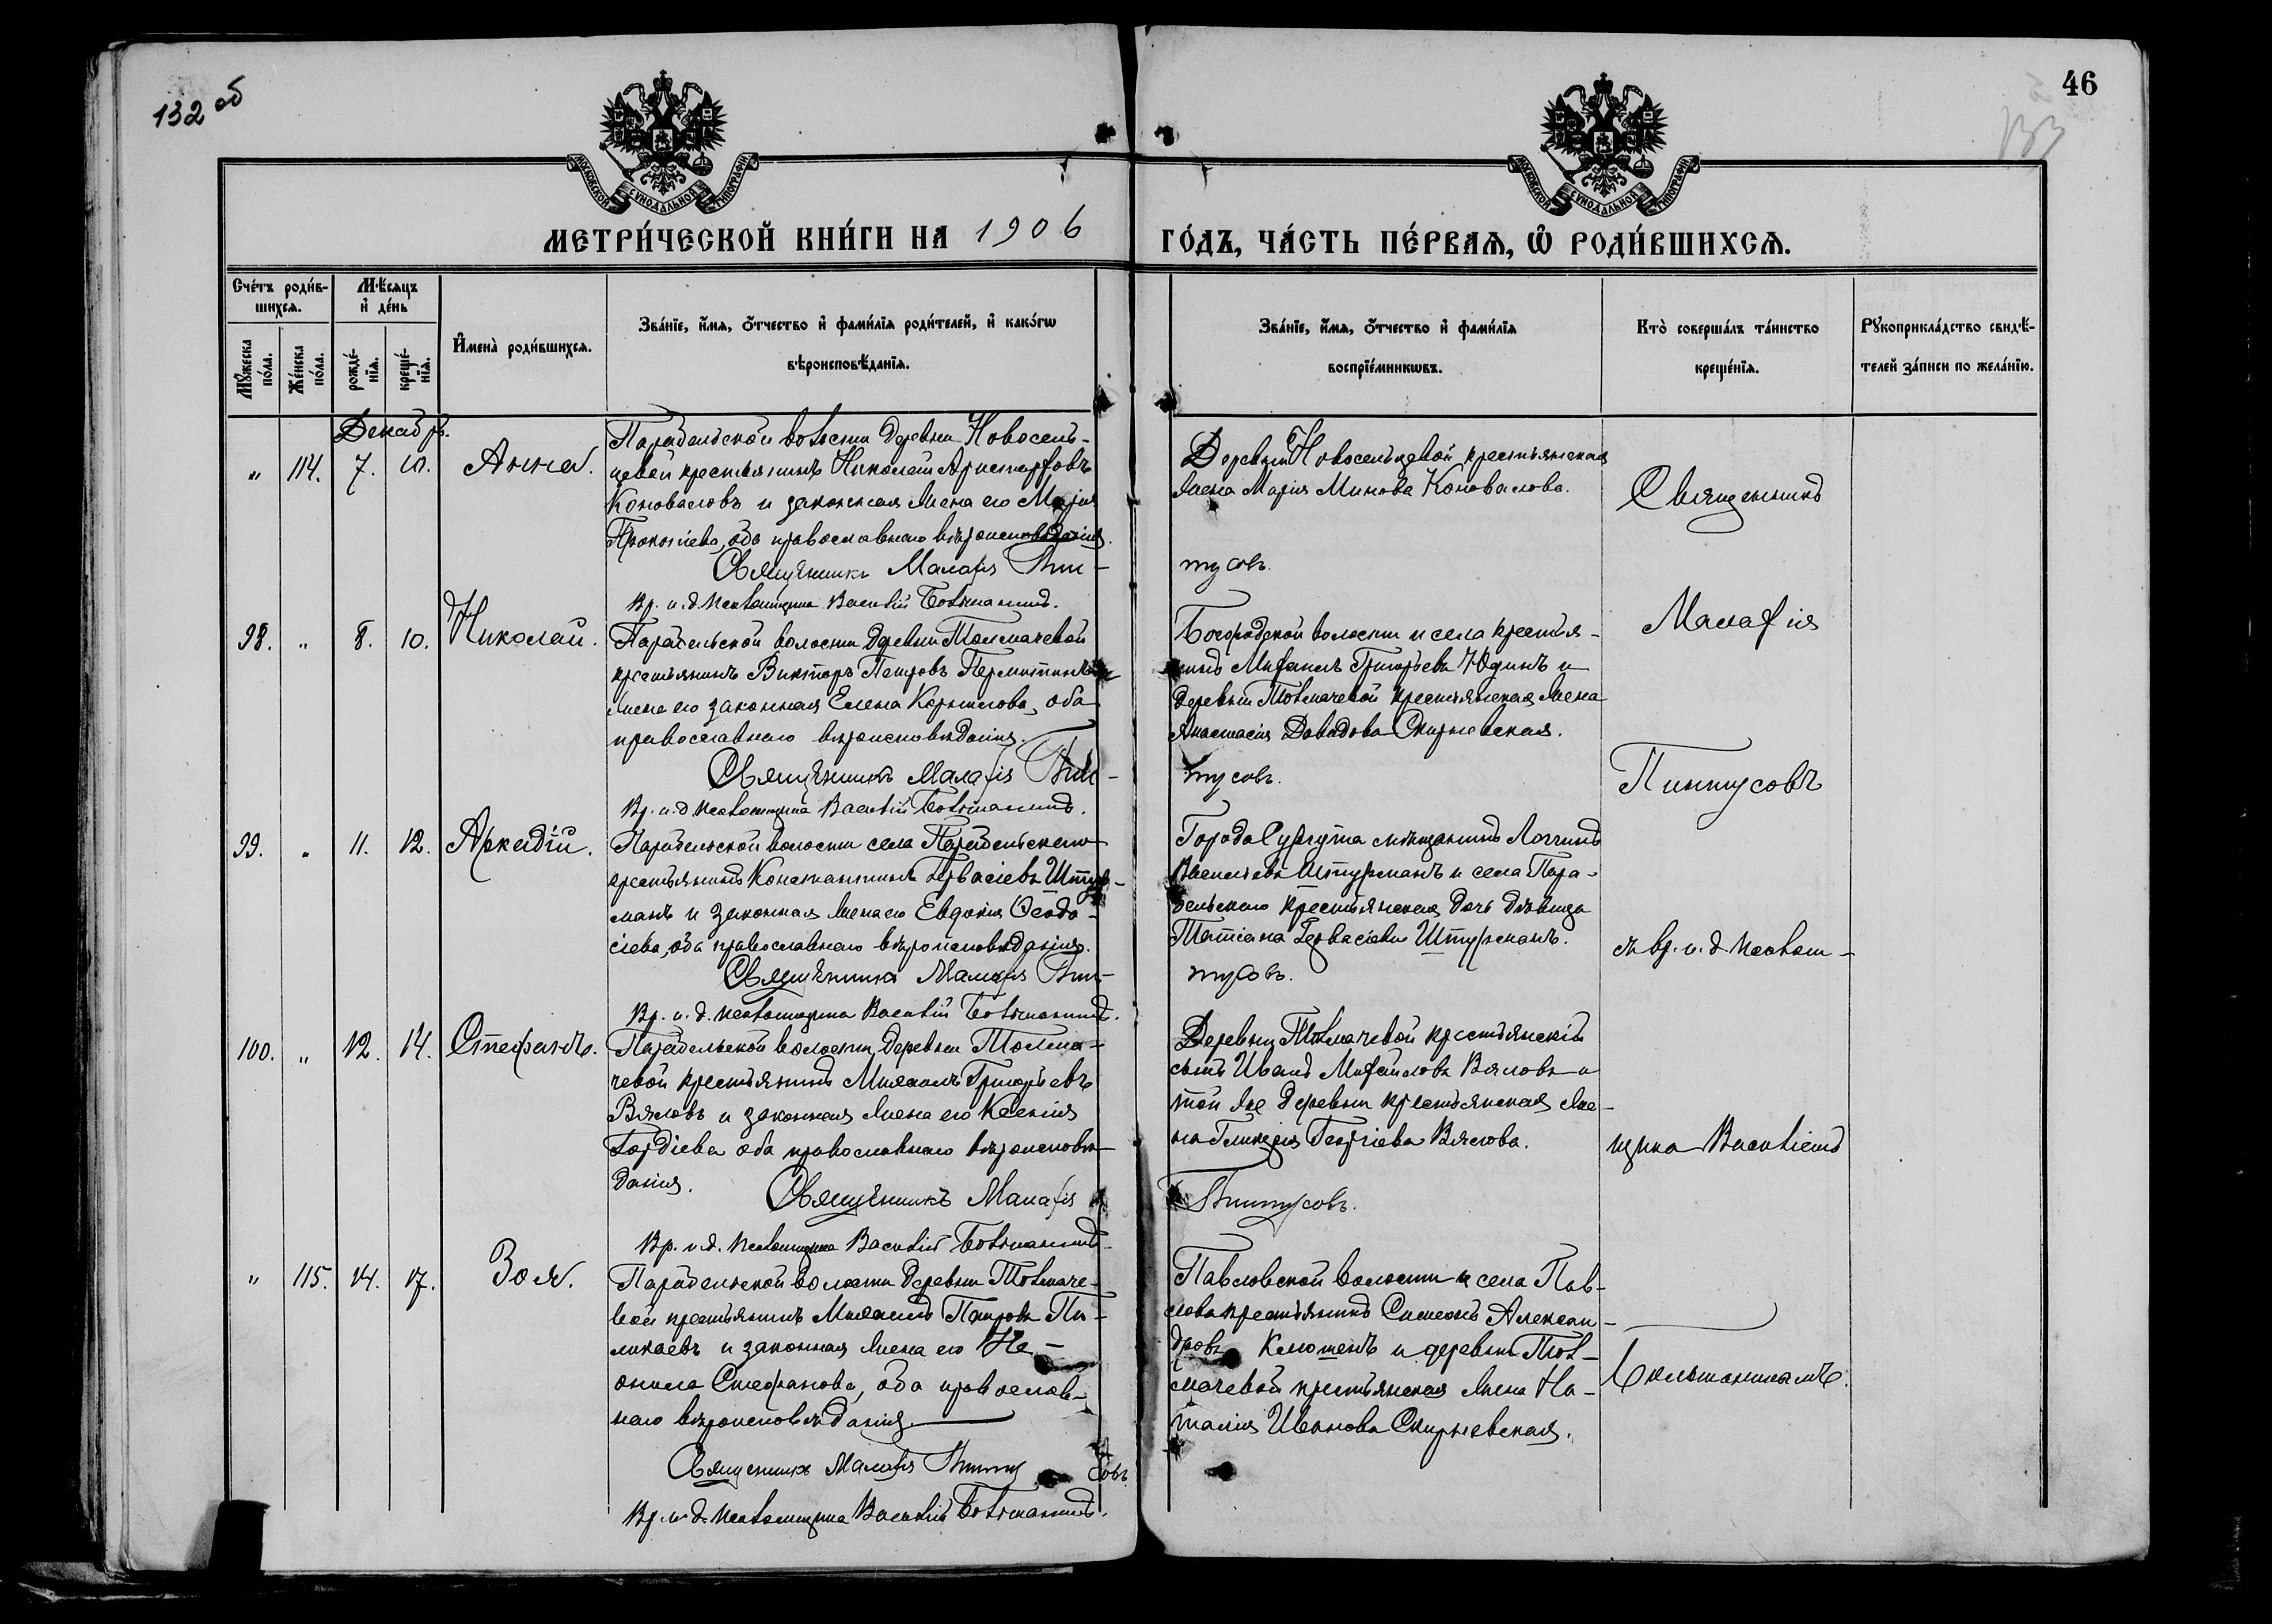 132 об
46
133
МОСКОВСКОЙ СУНОДАЛЬНОЙ ТИПОГРАФІИ
МОСКОВСКОЙ СУНОДАЛЬНОЙ ТИПОГРАФІИ
МЕТРИ́ЧЕСКОЙ КНИ́ГИ НА 1906 ГО́ДЪ, ЧА́СТЬ ПЕ́РВАЯ, Ѽ РОДИ́ВШИХСЯ.
Сче́тъ роди́в-
шихся.
Мѣ́сяцъ
и҆ де́нь
Мꙋ́жеска
по́ла.
Же́нска
по́ла.
рожде́-
нїя.
креще́-
нїя.
И҆мена̀ роди́вшихся.
Зва́нїе, и҆́мя, ѻ҆́тчество и҆ фами́лїя роди́телей, и҆ како́гѡ
вѣроисповѣ́данїя.
Зва́нїе, и҆́мя, ѻ҆́тчество и҆ фами́лїя
воспрїе́мникѡвъ.
Кто̀ соверша́лъ та́инство
креще́нїя.
Рꙋкоприкла́дство свидѣ́-
телей за́писи по жела́нїю.
Декабрь.
„ 114. 7. 10. Анна.
Парабельской волости деревни Новосель-
цевой крестьянинъ Николай Аристарховъ
Коноваловъ и законная жена его Марія
Прокопіева, оба православнаго вѣроисповѣданія.
Священникъ Малахія Пин-
Вр. и. д. псаломщика Василій Больтанинъ.
Деревни Новосельцевой крестьянская
жена Марія Минова Коновалова.
тусовъ.
98. „ 8. 10. Николай.
Парабельской волости деревни Толмачевой
крестьянинъ Викторъ Петровъ
жена его законная Елена Корнилова, оба
православнаго вѣроисповѣданія.
Священникъ Малахія Пин-
Вр. и. д. псаломщика Василій Больтанинъ.
Богородской волости и села крестья-
нинъ Михаилъ Григорьевъ Юдинъ и
деревни Толмачевой крестьянская жена
Анастасія Давидова Скирневская.
тусовъ.
99. „ 11. 12. Аркадій.
Парабельской волости села Парабельскаго
крестьянинъ Константинъ Гервасіевъ Штур-
манъ и законная жена его Евдокія Ѳеодо-
сіева, оба православнаго вѣроисповѣданія.
Священникъ Малахія Пин-
Вр. и. д. псаломщика Василій Больтанинъ.
Города Сургута мѣщанинъ Логгинъ
Васильевъ Штурманъ и села Пара-
бельскаго крестьянская дочь дѣвица
Татіана Гервасіева Штурманъ.
тусовъ.
100. „ 12. 14. Стефанъ.
Парабельской волости деревни Толма-
чевой крестьянинъ Михаилъ Григорьевъ
Вяловъ и законная жена его Ксенія
Гордіева оба православнаго вѣроисповѣ-
данія.
Священникъ Малахія
Вр. и. д. псаломщика Василій Больтанинъ.
Деревни Толмачевой крестьянскій
сынъ Иванъ Михайловъ Вяловъ и
той же деревни крестьянская же-
на Гликерія Георгіева Вялова.
Пинтусовъ.
„ 115. 14. 17. Зоя.
Парабельской волости деревни Толмаче-
вой крестьянинъ Михаилъ Петровъ Пи-
ликаевъ и законная жена его Не-
онила Стефанова, оба православ-
наго вѣроисповѣданія.
Священникъ Малахія Пинту совъ.
Вр. и. д. псаломщика Василій Больтанинъ.
Павловской волости и села Пав-
лова крестьянинъ Симеонъ Алексан-
дровъ и деревни Тол-
мачевой крестьянская жена На-
талія Иванова Скирневская.
Священникъ
Малахія
Пинтусовъ
съ вр. и. д. псалом-
щика Василіемъ
Больтанинамъ.